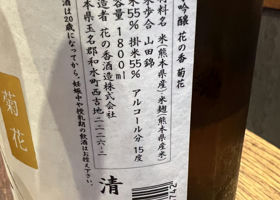 吟醸 花の香 菊花
材料名 米(熊本県産)・米麹(熊本県産米)
米歩合 山田錦
米55% 掛米55% アルコール分 15度
容量 1800ml
造者 花の香酒造株式会社
本県玉名郡和水町西吉地2226-2
酒は20歳になってから。妊娠中や授乳期の飲酒はお控え下さい。
清
菊花